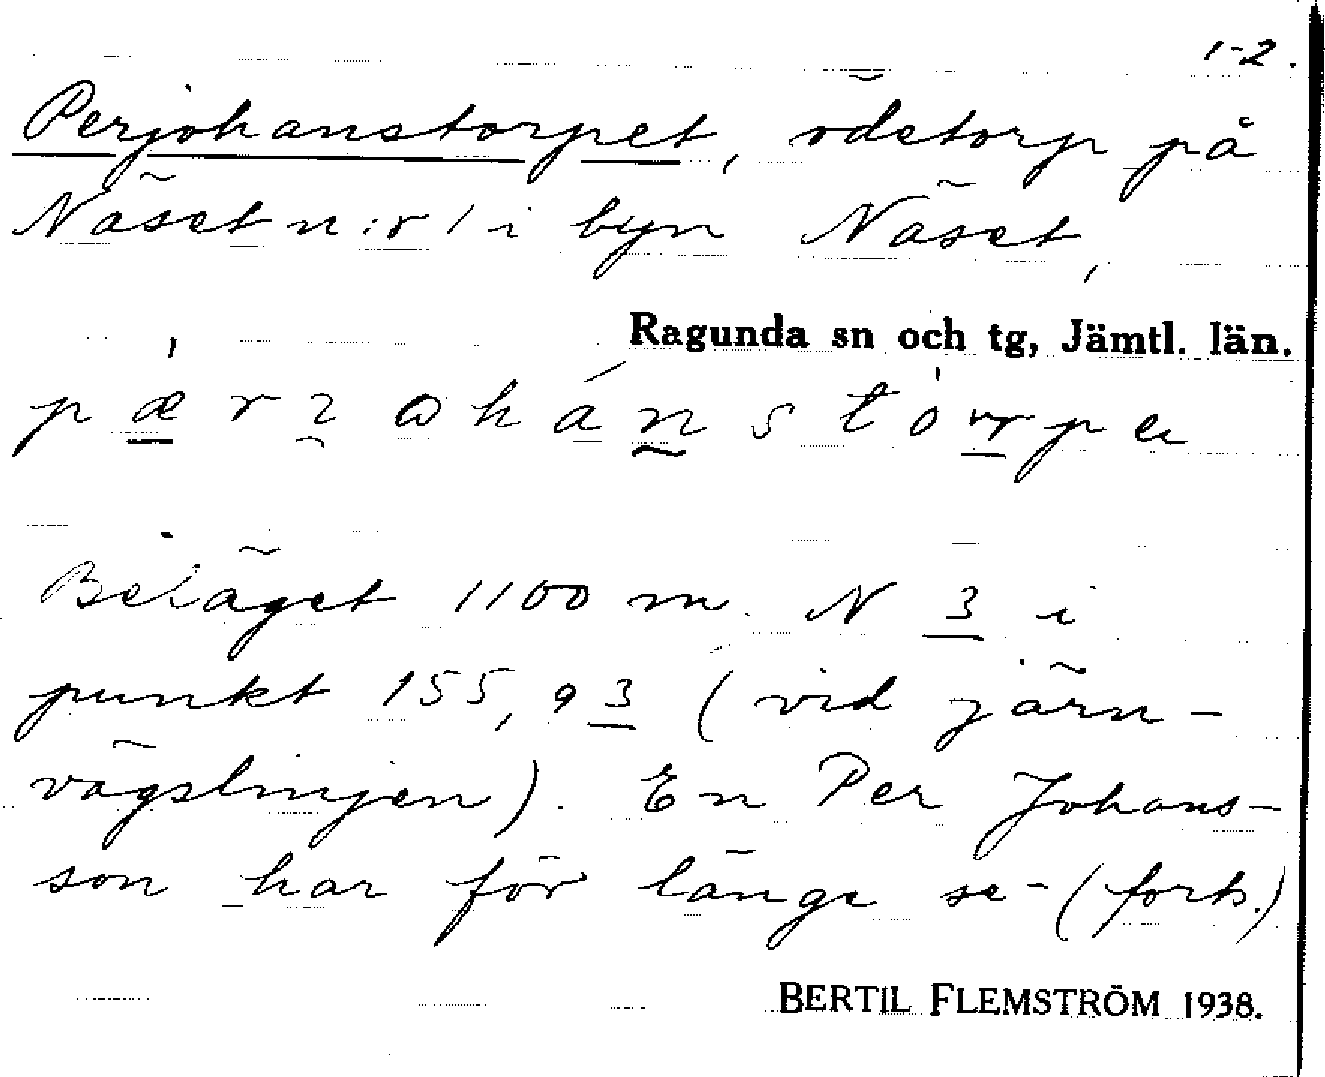 1-2.
Perjohanstorpet, ödetorp på
Näset n:r 1 i byn Näset,
Ragunda sn och tg, Jämtl. län.
Beläget 1100 m. N 3 i
punkt 155,93 (vid järn-
vägslinjen). En Per Johans-
son har för länge se- (forts.)
BERTIL FLEMSTRÖM 1938.